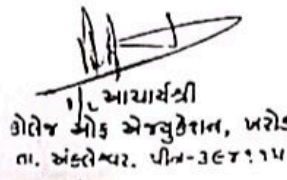 આચાર્યશ્રી
કોલેજ ઓફ એજ્યુકેશન, ખરોડ
તા. અંકલેશ્વર. પીન-૩૯૪૧૧૫